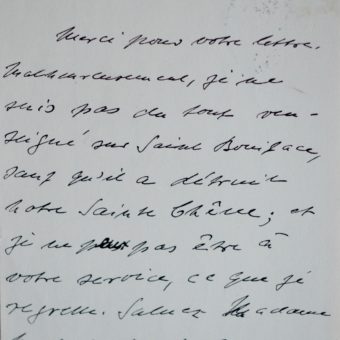 Merci pour votre lettre.
Malheureusement, je ne
suis pas du tout ren-
seigné sur Saint Boniface,
sauf qu'il a détruit
notre Sainte Chêne ; et
je ne peux pas être à
votre service, ce que je
regrette. Saluez Madame